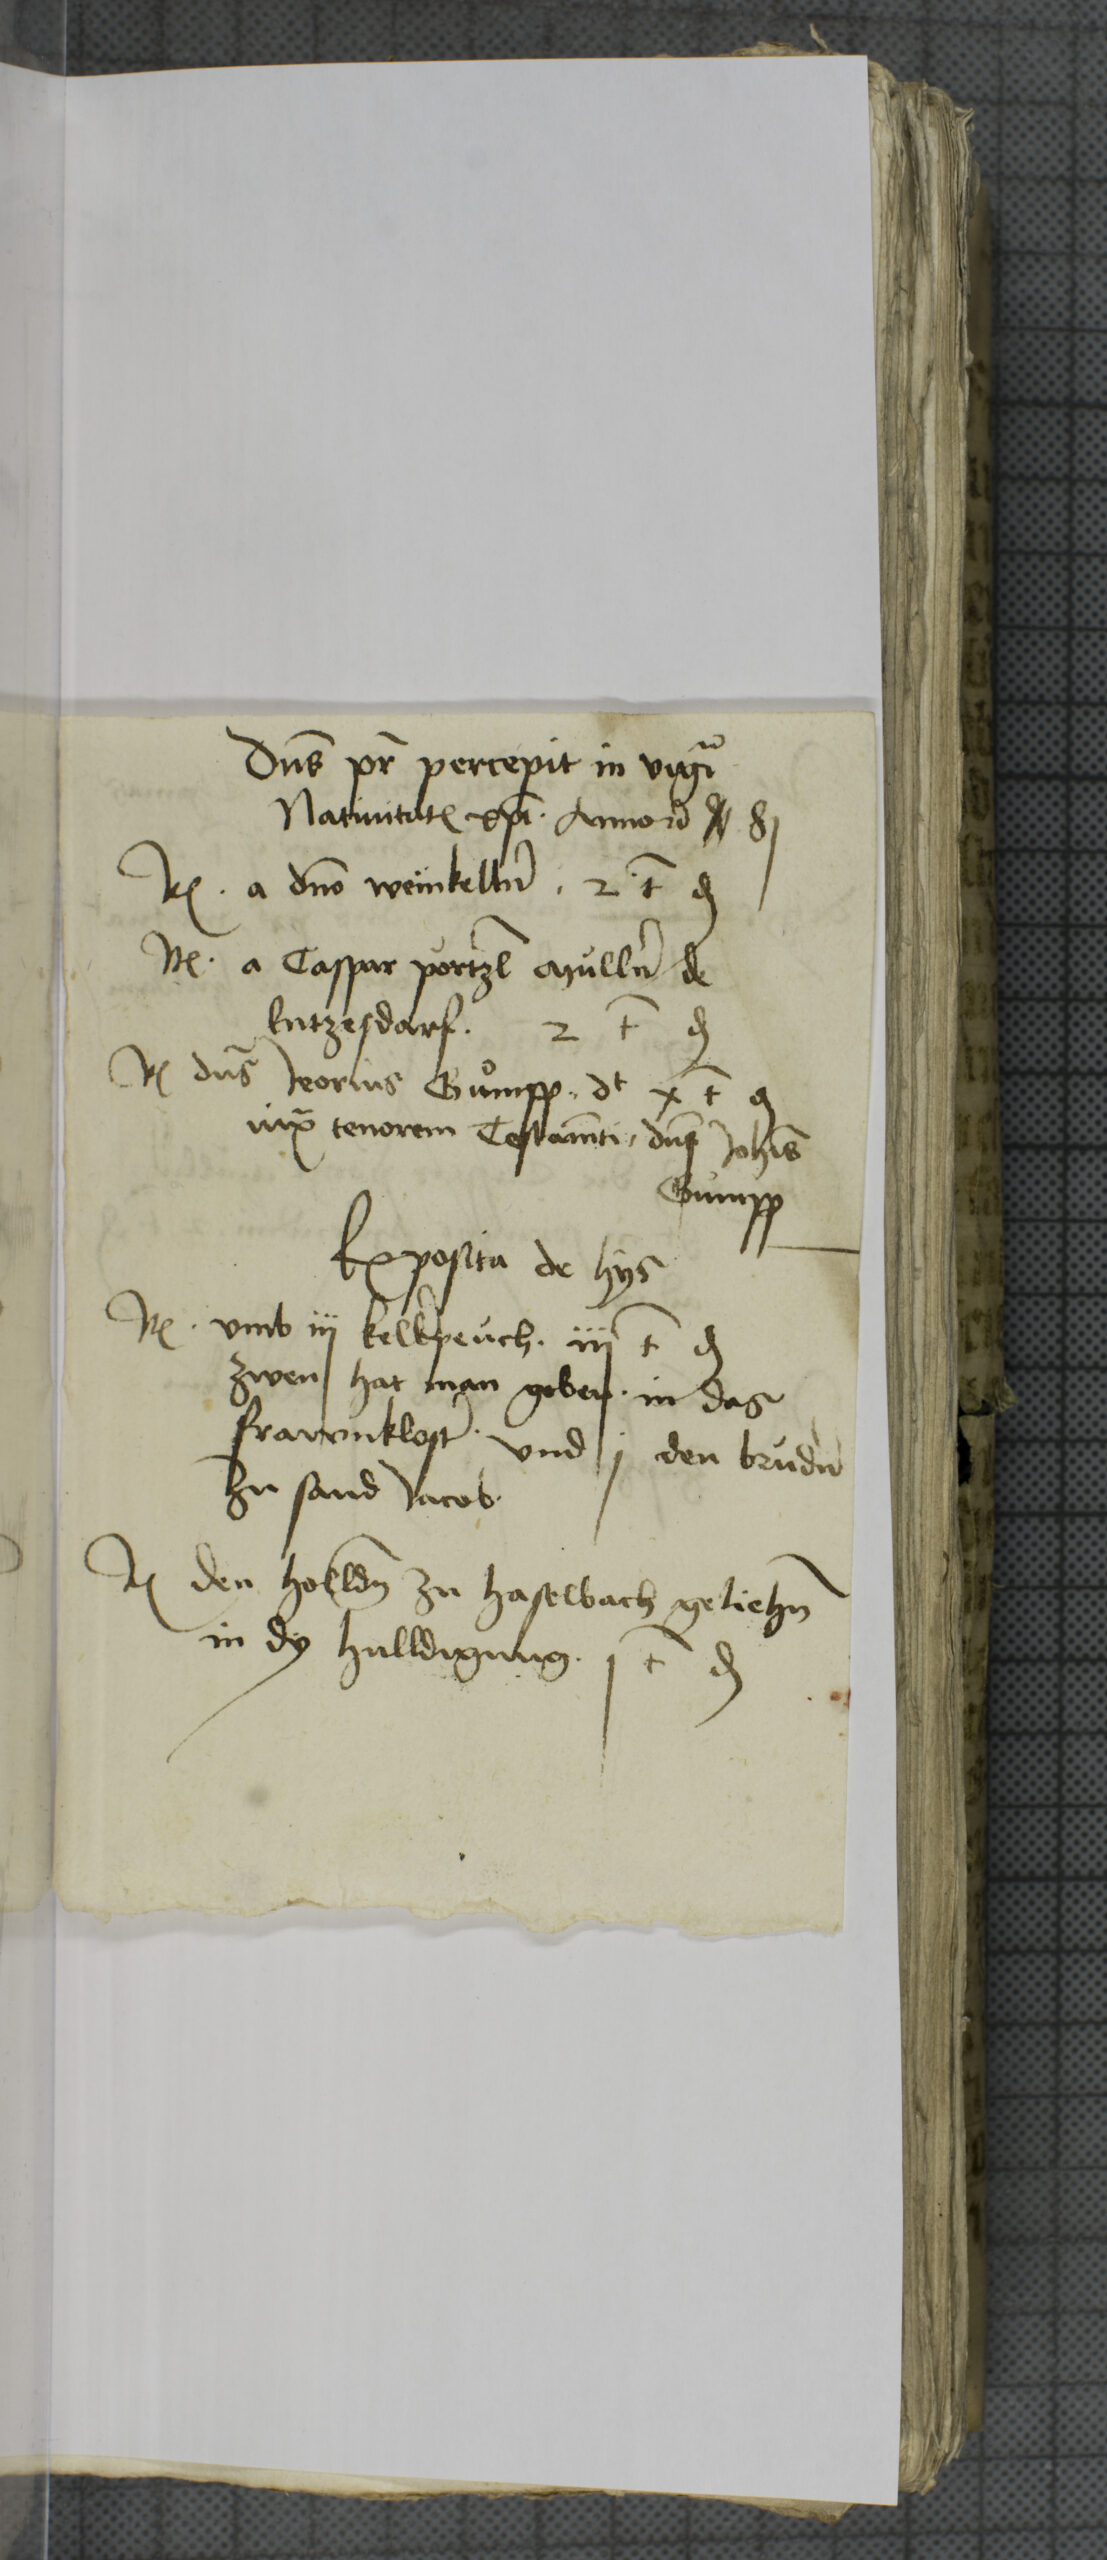 Dns pr percepit in vigi
Natiuitat xpi. Annor 81
It. a dno weinkelln. 2 t d
It. a Caspar portzl Mulln de
kutzesdarf. 2 t d
It dns Jeorius Gumpp. dt x t d
iux tenorem Testamti. dni Johis
Gumpp
Exposita de hys
It. vmb iij kelkpeuch. iij t d
zwen hat man geben. in das
frawnklost. vnd j den brudn
zu sand Jacob.
It den holldn zu haselbach geliehn
in dy hulldigung. j t d